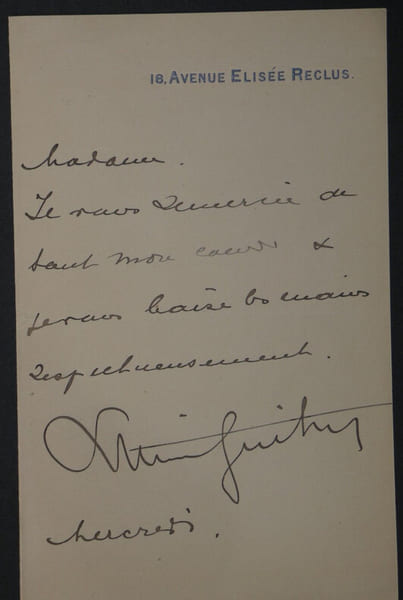 18, AVENUE ELISÉE RECLUS.
Madame.
Je vous remercie de
tout mon coeur &
je vous baise les mains
respectueusement.
Lucien Guitry
Mercredi.